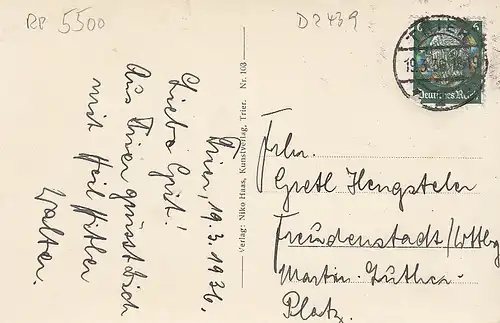 RP 5500
D2439
TRIER
19.3.36
6
Deutsches Reich
Trier, 19.3.1936.
Liebe Gretl!
Aus Trier grüsst Dich
mit Heil Hitler
Walter.
Verlag: Niko Haas, Kunstverlag, Trier. Nr. 103
Frln.
Gretl Hengsteler
Freudenstadt/Wttbg
Martin-Luther-
Platz.